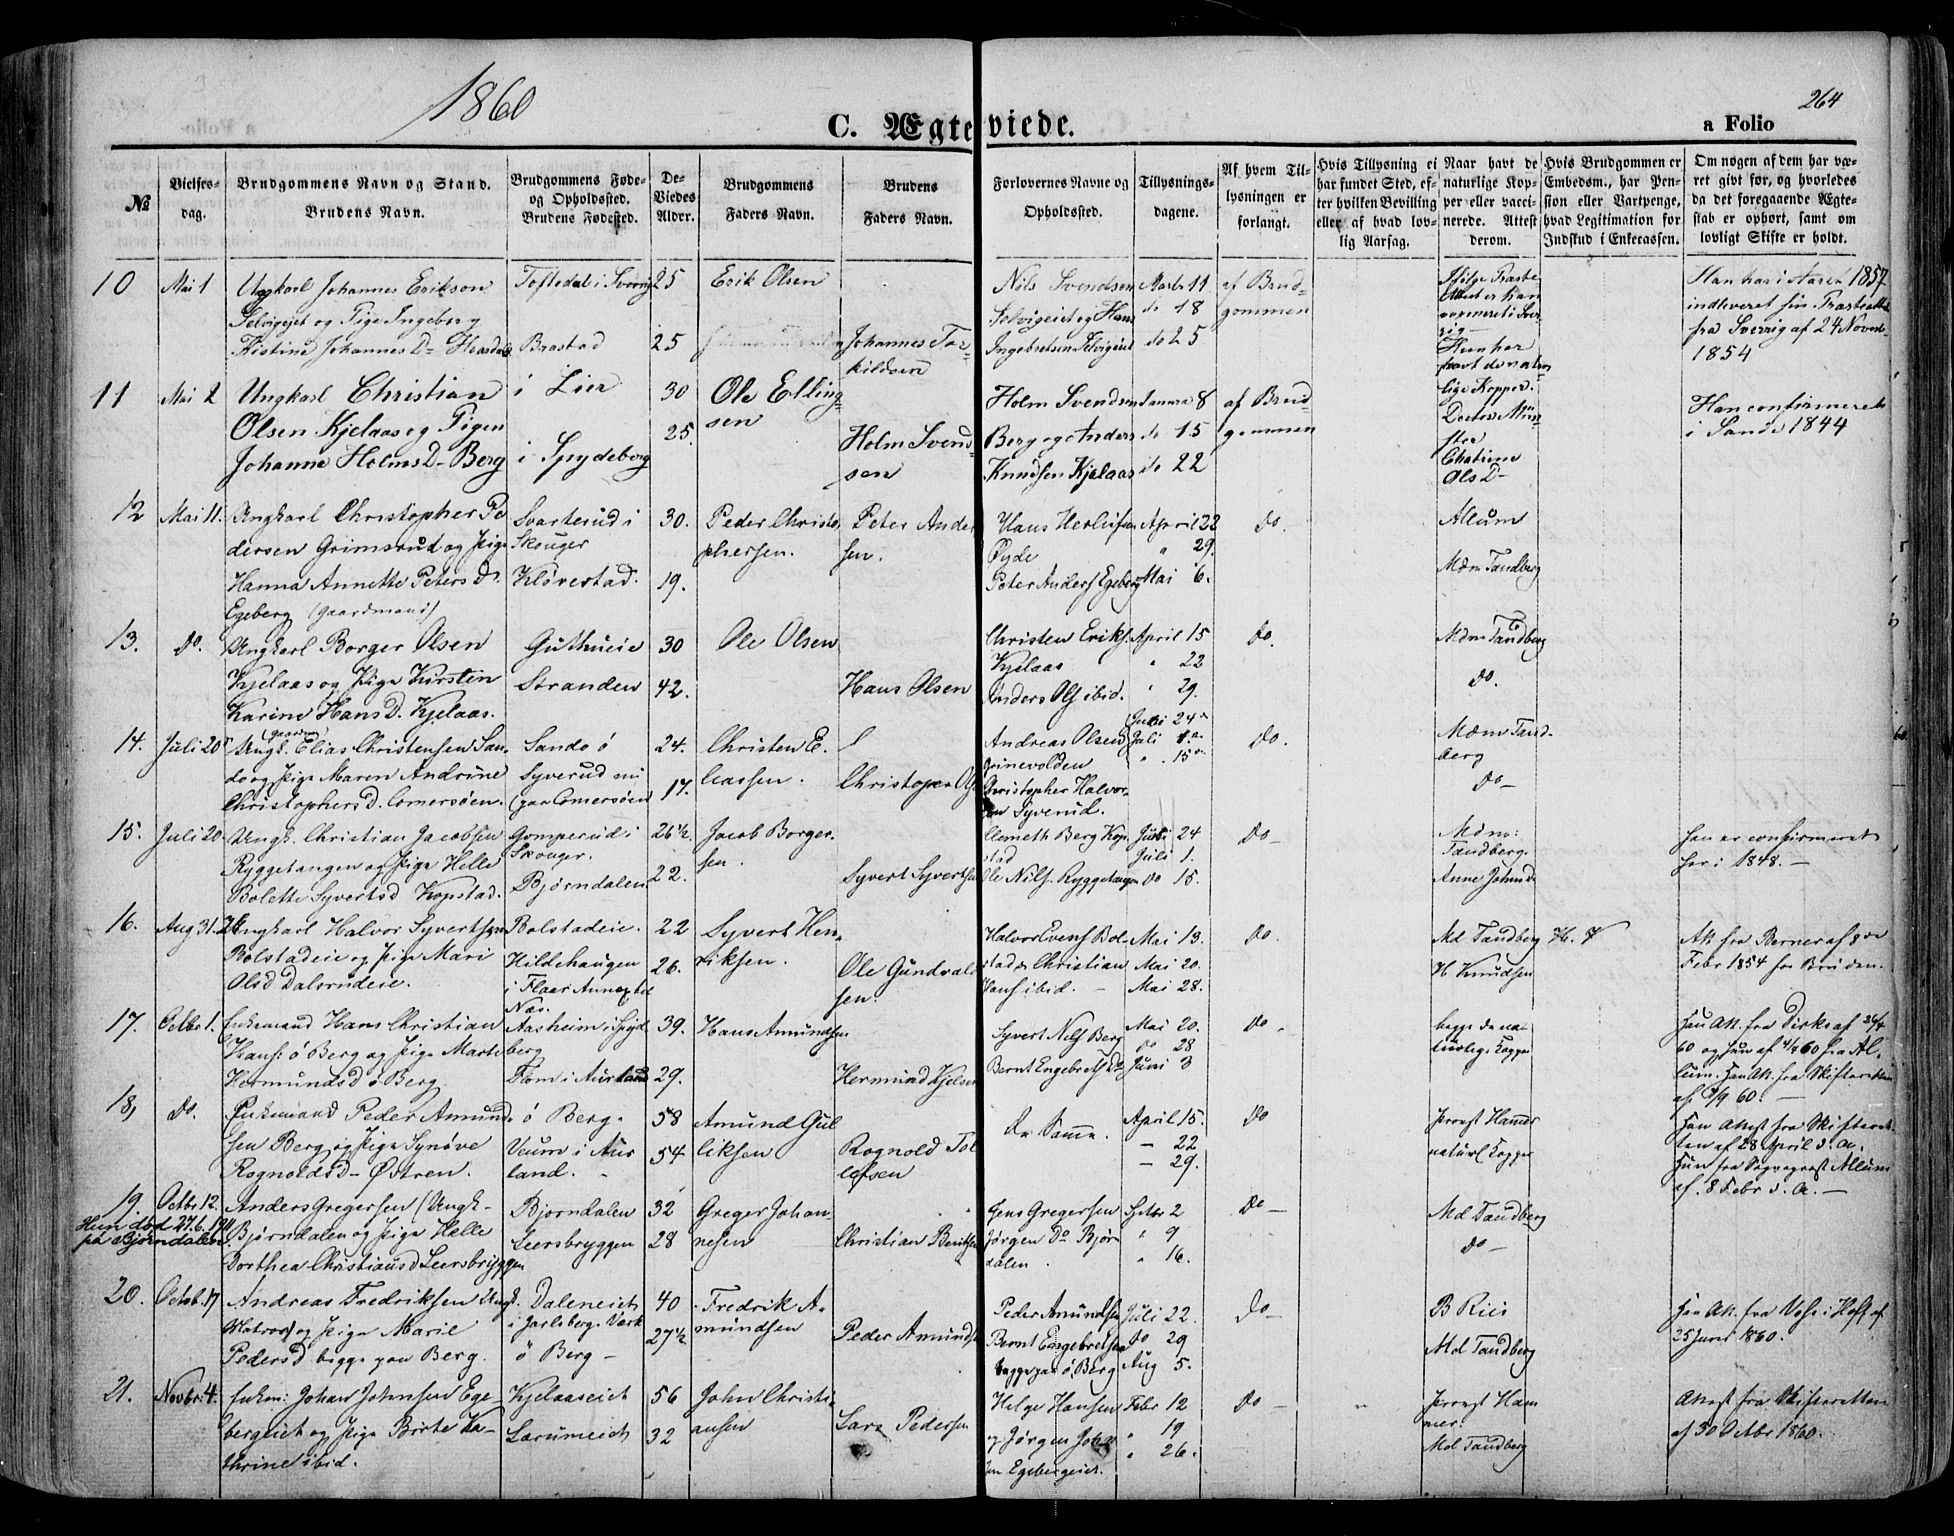 1860
264
C. Ægteviede.
a Folio
№
Vielses-
dag.
Brudgommens Navn og Stand.
Brudens Navn.
Brudgommens Føde-
og Opholdssted.
Brudens Fødested.
De
Viedes
Alder.
Brudgommens
Faders Navn.
Brudens
Faders Navn.
Forlovernes Navne og
Opholdssted.
Tillysnings-
dagene.
Af hvem Til-
lysningen er
forlangt.
Hvis Tillysning ei
har fundet Sted, ef-
ter hvilken Bevilling
eller af hvad lov-
lig Aarsag.
Naar havt de
naturlige Kop-
per eller vacci-
nerede. Attest
derom.
Hvis Brudgommen er
Embedsm., har Pen-
sion eller Vartpenge,
hvad Legitimation for
Indskud i Enkecassen.
Om nogen af dem har væ-
ret givt før, og hvorledes
da det foregaaende Ægte-
skab er ophørt, samt om
lovligt Skifte er holdt.
10 Mai 1 Ungkarl Johannes Erikson
Selvigejet og Pige Ingeborg
Kistine Johannes D-
Toftedal i Sverig
Brastad
25
25
Erik Olsen
Johannes Tor-
kildsen
Nils Svendsen
Selvigeiet og Hans
Ingebretsen Selvigeiet
Marts 11
do 18
do 25
af Brud-
gommen
Han har i Aaret 1857
indleveret sin
fra Sverrig af 24 Novemb
1854
11 Mai 2 Ungkarl Christian
Olsen Kjelaas og Pigen
Johanne Holms D- Berg
i Lier
i Spydeberg
30
25.
Ole Elling-
sen
Holm Svend-
sen
Holm Svendsen
Berg og Anders
Knudsen Kjelaas
Januar 8
do 15
do 22
af Brud-
gommen
Hun har
havt de natur-
lige Kopper.
Doctor Mün-
ster
Ols D-
Han confirmeret
i Sande 1844
12 Mai 11. Ungkarl Christopher Pe
dersen Grimsrud og Pige
Hanna Annette Peters D.
Egeberg (Gaardmand)
Svarterud i
Skouger
Klöverstad.
30.
19.
Peder Christo
phersen.
Peter Ander
sen.
Hans Herlufsen
Øyde
Peter Anders Egeberg
April 22
" 29.
Mai 6.
Do.
Allum
Mdm Tandberg
13. Do. Ungkarl Borger Olsen
Kjelaas og Pige Kirsten
Karine Hans D. Kjelaas.
Guthueie
Stranden
30
42.
Ole Olsen
Hans Olsen
Christen Eriks
Kjelaas
Anders Ols ibid.
April 15
" 22
" 29.
Do.
Mdm Tandberg
Do.
14. Juli 20 Ungk. Elias Christensen San-
do og Pige Maren Andrine
Christophersd. Comersöen.
Sando ö
Syverud nu
paa Comersöen
24.
17.
Christen E-
liassen.
Christoper Ols
Andreas Olsen
Grinevolden
Christopher Halvor-
sen Syverud.
Juni 24
Juli 1
" 15
Do.
Mdm Tand-
berg
Do-
15. Juli 20 Ungk. Christian Jacobsen
Ryggetangen og Pige Helle
Bolette Syvertsd Kopstad.
Gomperud i
Skouger.
Bjørndalen
26½
22.
Jacob Borger-
sen.
Syvert Syvertsen
Clemeth Berg Kop-
stad
Ole Nils. Ryggetangen
Juni 24
Juli 1.
Do 15.
Do-
Mdm:
Tandberg.
Anne
han er confirmeret
her i 1848.-
16. Aug 31. Ungkarl Halvor Syvertsen
Bolstadeie og Pige Mari
Olsd Dalsrudeie.
Bolstadeie.
Hildehaugen
i Flaar Annex til
Næs.
22
26.
Syvert Hen-
riksen.
Ole Gundval-
sen.
Halvor Evens Bol-
stad & Christian
Hans ibid.
Mai 13.
Mai 20.
Mai 28.
Do.
Md Tandberg
H Knudsen
Att. fra Berner af 8
Febr 1854 for Bruden.
17. Octbr 1. Enkemand Hans Christian
Hans: ö Berg og Pige Marte
Hermundsd ö Berg
Aasheim i Spyd-
berg
Flom i Aurland
39.
29.
Hans Amundsen
Hermund Kjelsen
Syvert Nils Berg
Bernt Engebrets do
Mai 20.
do 28
Juni 3
Do
begge de na-
turlige Kopper
han Att. fra Dirks af
60 og hun af 4/4 60 fra Al-
lum. han Att. fra Skifteretten
af 9 60.-
18, Do. Enkemand Peder Amund-
sen Berg og Pige Synöve
Rognolds d- Østren.
ö Berg.
Veum i Aur
land.
58
54
Amund Gul
liksen
Rognold Tol
lefsen
De Samme.
April 15.
- 22
- 29.
Do
Provst Hamer
naturl Kopper
han Attest fra Skifteret-
ten af 28 April d. A.
hun fra Sognepræst Allum
af. 8 Febr d. A.-
19. Octbr 12. Anders Gregersen (Ungk-
Bjørndalen og Pige Helle
Dorthea Christiansd Leersbryggen
Hun død 27.6.1911
på Bjørndalen
Bjorndalen
Leersbryggen
32
28
Greger Johan-
nesen
Christian Berntsen
Jens Gregersen
Jørgen Do Bjør
dalen.
Sptbr 2
" 9
" 16.
Do-
Md Tandberg
Do-
20. Octob. 17 Andreas Fredriksen Ungk.
Matros og Pige Marie
Peders d begge paa Berg.
Daleneiet
i Jarlsberg. Værk
ö Berg-
40
27½
Fredrik A-
mundsen
Peder Amundsen
Peder Amundsen
Bernt Engebretsen
begge paa ö Berg
Juli 22.
do 29
Aug 5.
Do-
B Riis
Md Tandberg
han Att. fra Voss i Hoff af
25 Juni 1860.
21. Novbr. 4. Enkem: Johan Johnsen Ege-
bergeiet og Pige Birte Ka-
thrine ibid.
Kjelaaseiet
Lærumeiet
56
32
John Christi-
ansen
Lars Pedersen
Helge Hansen
og Jørgen John
sen Egebergeiet.
Febr 12
" 19
" 26.
Do-
Provst Ham
mer.
Md Tandberg
Attest fra Skifteretten
af 30 Octbr 1860.